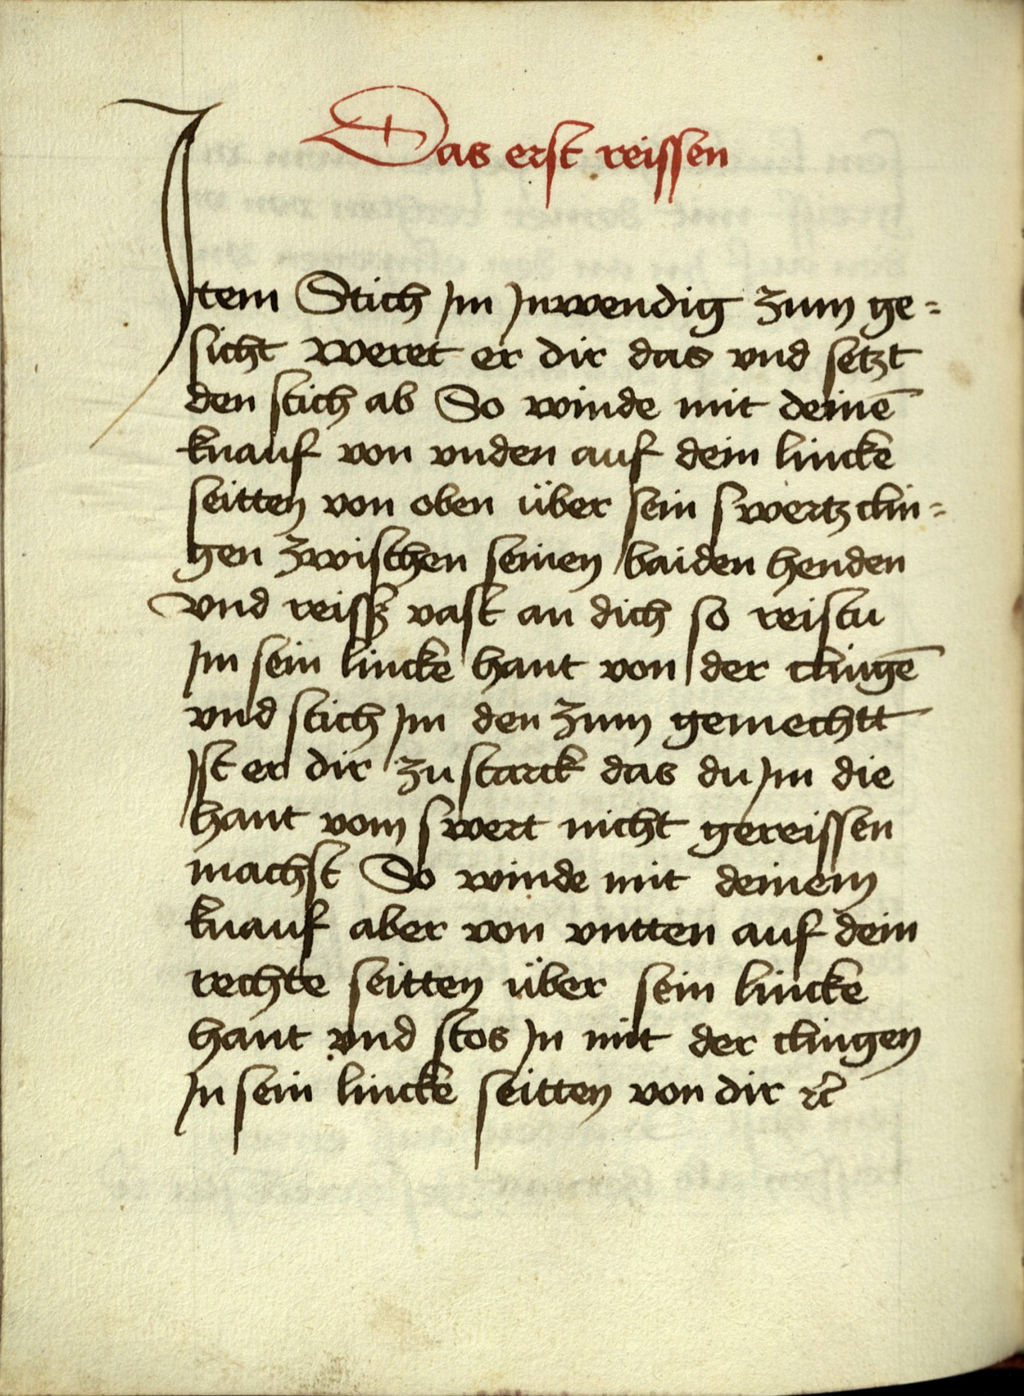 Das erst reissen
Item Stich Jm Jnwendig zum ge=
sicht weret er dir das vnd setzt
den stich ab So winde mit deinē
knauf von vnden auf dein lincke
seitten von oben über sein swertzclin=
gen zwischen seinen baiden henden
vnd reisß vast an dich so reistu
Jm sein lincke hant von der clingē
vnd stich Jm den zum gemechtt
Jst er dir zu starck das du Jm die
hant vom swert nicht gereissen
machst So winde mit deinem
knauf aber von vntten auf dein
rechte seitten über sein lincke
hant vnd stos Jn mit der clingen
Jn sein lincke seitten von dir ꝛc